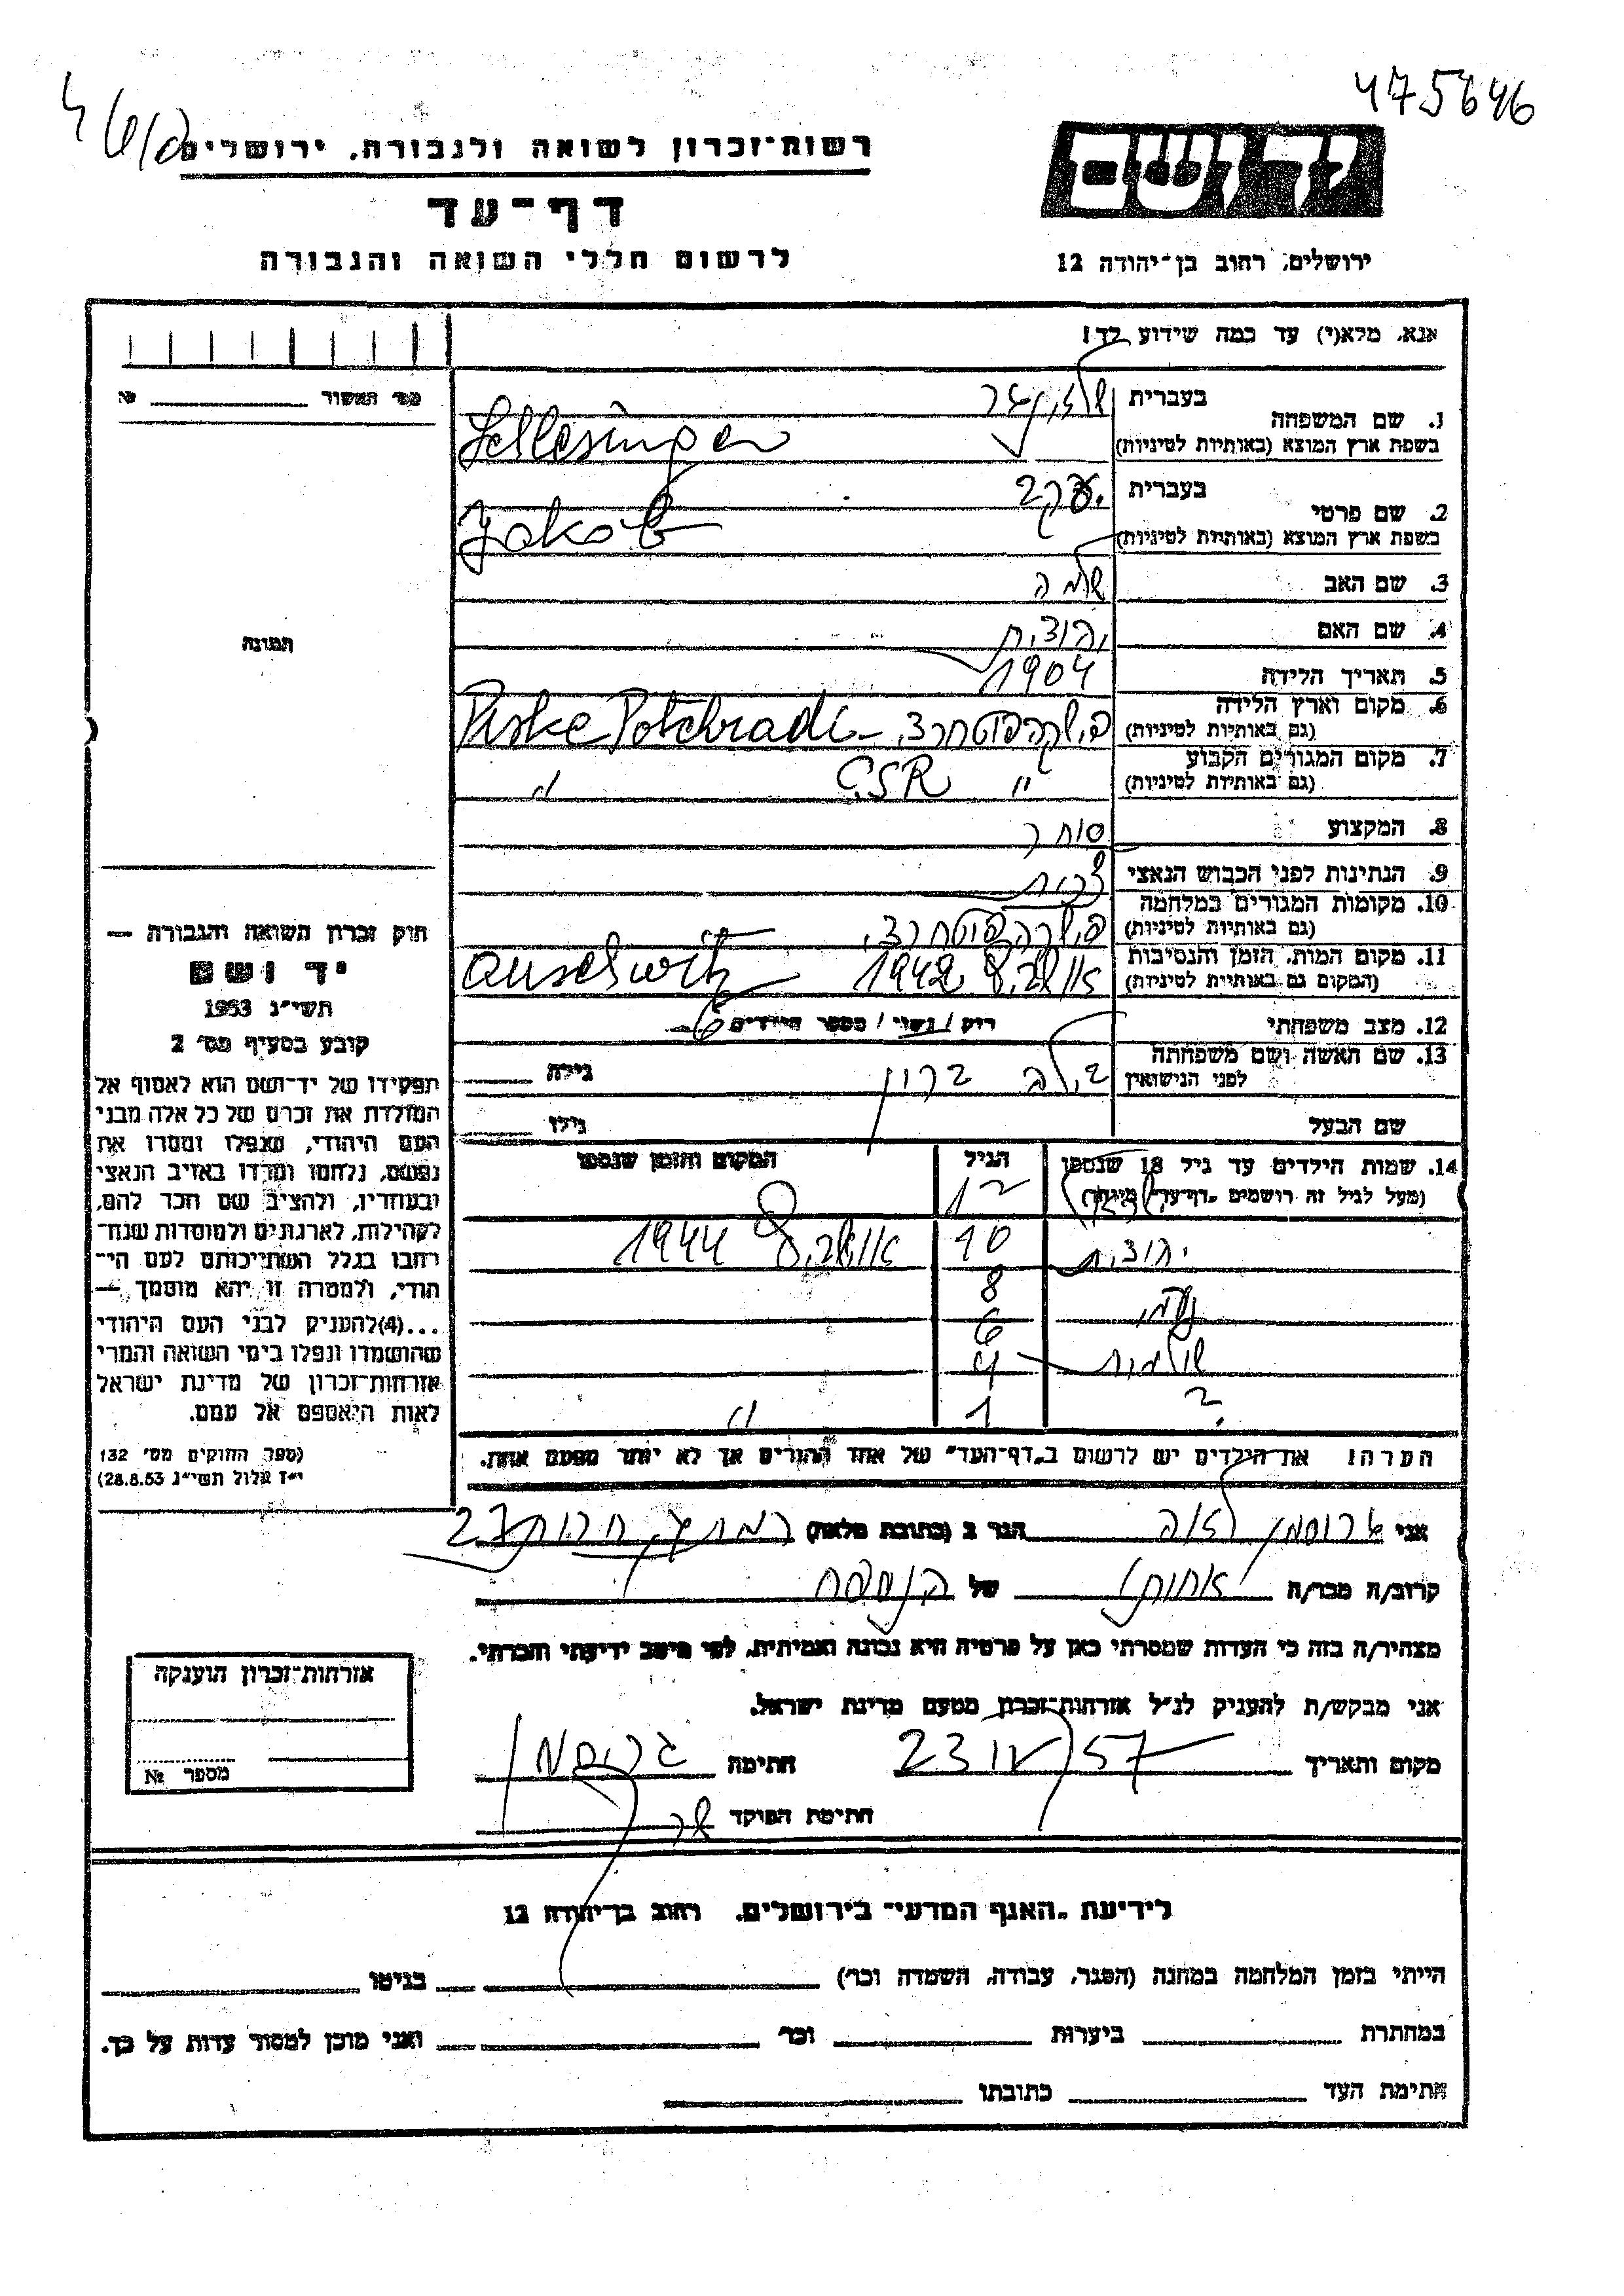 475646
רשות־זכרון לשואה ולגבורה, ירושלים
יד ושם
דף־עד
לרשום חללי השואה והגבורה
ירושלים, רחוב בן־יהודה 12
אנא, מלא(י) עד כמה שידוע לך!
מס' האשור №
1. שם המשפחה
בעברית שלזינגר
בשפת ארץ המוצא (באותיות לטיניות) Schlesinger
2. שם פרטי
בעברית יעקב
בשפת ארץ המוצא (באותיות לטיניות) Jakob
3. שם האב שלמה
4. שם האם יהודית
תמונה
5. תאריך הלידה 1904
6. מקום וארץ הלידה (גם באותיות לטיניות) Piske Potchradi
7. מקום המגורים הקבוע (גם באותיות לטיניות) " CSR "
8. המקצוע סוחר
9. הנתינות לפני הכבוש הנאצי
10. מקומות המגורים במלחמה (גם באותיות לטיניות)
11. מקום המות, הזמן והנסיבות (המקום גם באותיות לטיניות) אושביץ 1942 Auschwitz
12. מצב משפחתי רוק / נשוי / מספר הילדים 6
13. שם האשה ושם משפחתה לפני הנישואין ברון גילה
שם הבעל גילו
14. שמות הילדים עד גיל 18 שנספו (מעל לגיל זה רושמים "דף־עד" מיוחד) הגיל המקום והזמן שנספו
12
יהודית 10 אושביץ 1944
נעמי 8
6
שולמית 4
? 1 "
הערה! את הילדים יש לרשום ב"דף־העד" של אחד ההורים אך לא יותר מפעם אחת.
חוק זכרון השואה והגבורה —
יד ושם
תשי"ג 1953
קובע בסעיף מס' 2
תפקידו של יד־ושם הוא לאסוף אל
המולדת את זכרם של כל אלה מבני
העם היהודי, שנפלו ומסרו את
נפשם, נלחמו ומרדו באויב הנאצי
ובעוזריו, ולהציב שם וזכר להם,
לקהילות, לארגונים ולמוסדות שנח־
רבו בגלל השתייכותם לעם הי־
הודי, ולמטרה זו יהא מוסמך —
...(4)להעניק לבני העם היהודי
שהושמדו ונפלו בימי השואה והמרי
אזרחות־זכרון של מדינת ישראל
לאות היאספם אל עמם.
(ספר החוקים מס' 132
י"ז אלול תשי"ג 28.8.53)
אני גרוסמן לאה הגר ב (כתובת מלאה) רמת גן, חרות 27
קרוב/ה מכר/ה אחותו של הנספה
מצהיר/ה בזה כי העדות שמסרתי כאן על פרטיה היא נכונה ואמיתית, לפי מיטב ידיעתי והכרתי.
אני מבקש/ת להעניק לנ"ל אזרחות־זכרון מטעם מדינת ישראל.
מקום ותאריך 23 IV 57 חתימה גרוסמן
חתימת הפוקד
אזרחות־זכרון הוענקה
מספר №
לידיעת "האגף המדעי" בירושלים, רחוב בן־יהודה 12
הייתי בזמן המלחמה במחנה (הסגר, עבודה, השמדה וכו') בגיטו
במחתרת ביערות וכו' ואני מוכן למסור עדות על כך.
חתימת העד כתובתו